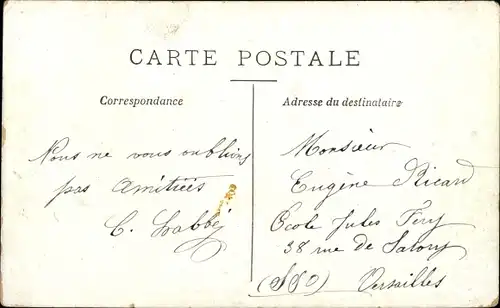 CARTE POSTALE
Correspondance
Adresse du destinataire
Nous ne vous oublions
pas Amitiés
C. Labbé
Monsieur
Eugène Ricard
École Jules Féry
38 rue de Satory
(S&O) Versailles